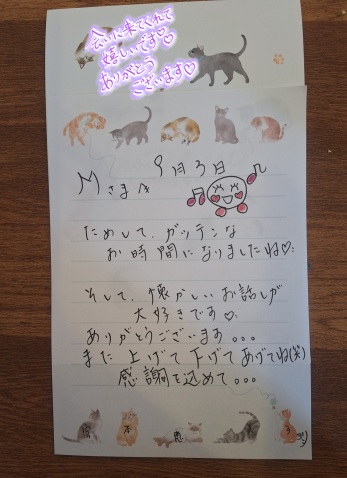 会いに来てくれて
嬉しいです♡♡
ありがとう
ございます♡
9月3日
Mさまへ
ためして、ガッテンな
お時間になりましたね♡
そして、懐かしいお話しが
大好きです♡
ありがとうございます。。。
また上げて下げてあげてね(笑)
感謝を込めて。。。